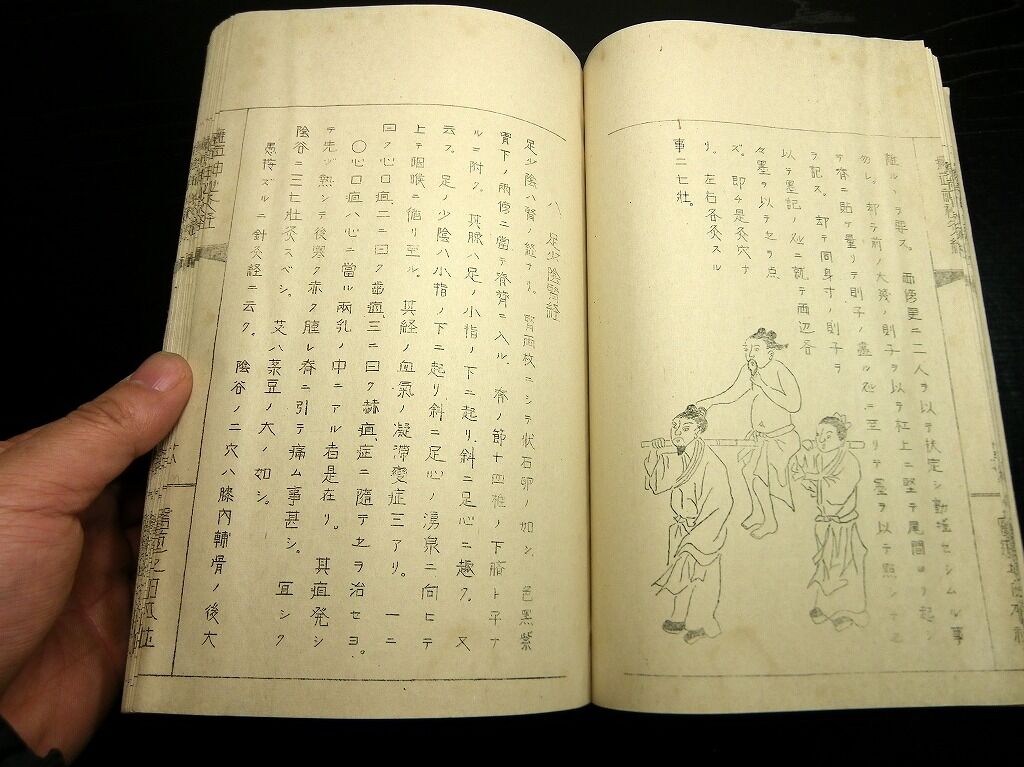 離ルヽヲ要ス。両傍更ニ二人ヲ以テ扶定シ動揺セシムル事
勿レ。却テ前ノ大篾ノ則子ヲ以テ杠上ニ竪テ尾閭ヨリ起シ
サ脊ニ貼ケ量リテ則子ノ盡ル処ニ至リテ墨ヲ以テ點シテ之
ヲ記ス。却テ同身寸ノ則子ヲ
以テ墨記ノ処ニ就テ両辺各
々墨ヲ以テ之ヲ点
ズ。即チ是灸穴ナ
リ。左右各灸スル
事二七壮。
八、足少陰腎経
足少陰ハ腎ノ経ナリ。腎両枚ニシテ状石卵ノ如シ、色黒紫
胃下ノ両傍ニ當テ脊膂ニ入ル。脊ノ節十四椎ノ下臍ト子ナ
ルニ附ク。其脉ハ足ノ小指ノ下ニ起リ、斜ニ足心ニ趣ク。又
云フ。足ノ少陰ハ小指ノ下ニ起リ斜ニ足心ノ湧泉ニ向ヒテ
上テ咽喉ニ循リ至ル。其経ノ血氣ノ凝滞変症三アリ。一ニ
曰ク心口疽、二ニ曰ク歯疽三ニ曰ク赫疽、症ニ隨テ之ヲ治セヨ。
〇心口疽ハ心ニ當ル両乳ノ中ニアル者是在リ。其疽発シ
テ先ヅ熱シテ後寒ク赤ク腫レ脊ニ引テ痛ム事甚シ。宜シク
陰谷ニ三七壮灸スベシ。艾ハ菉豆ノ大ノ如シ。
愚按ズルニ針灸経ニ云ク。陰谷ノ二穴ハ膝内輔骨ノ後大